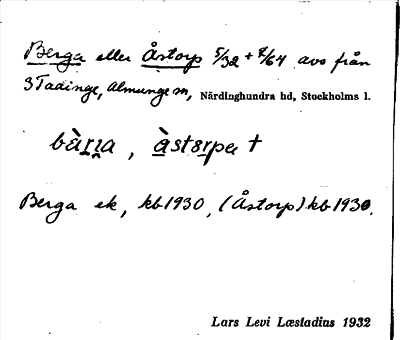 Berga eller Åstorp 5/32 + 7/64 avs från
3 Tadinge, Almunge sn, Närdinghundra hd, Stockholms l.
bà̱r̯ɪa , à̱stɞrpet †
Berga ek, kb 1930, (Åstorp) kb 1930.
Lars Levi Læstadius 1932